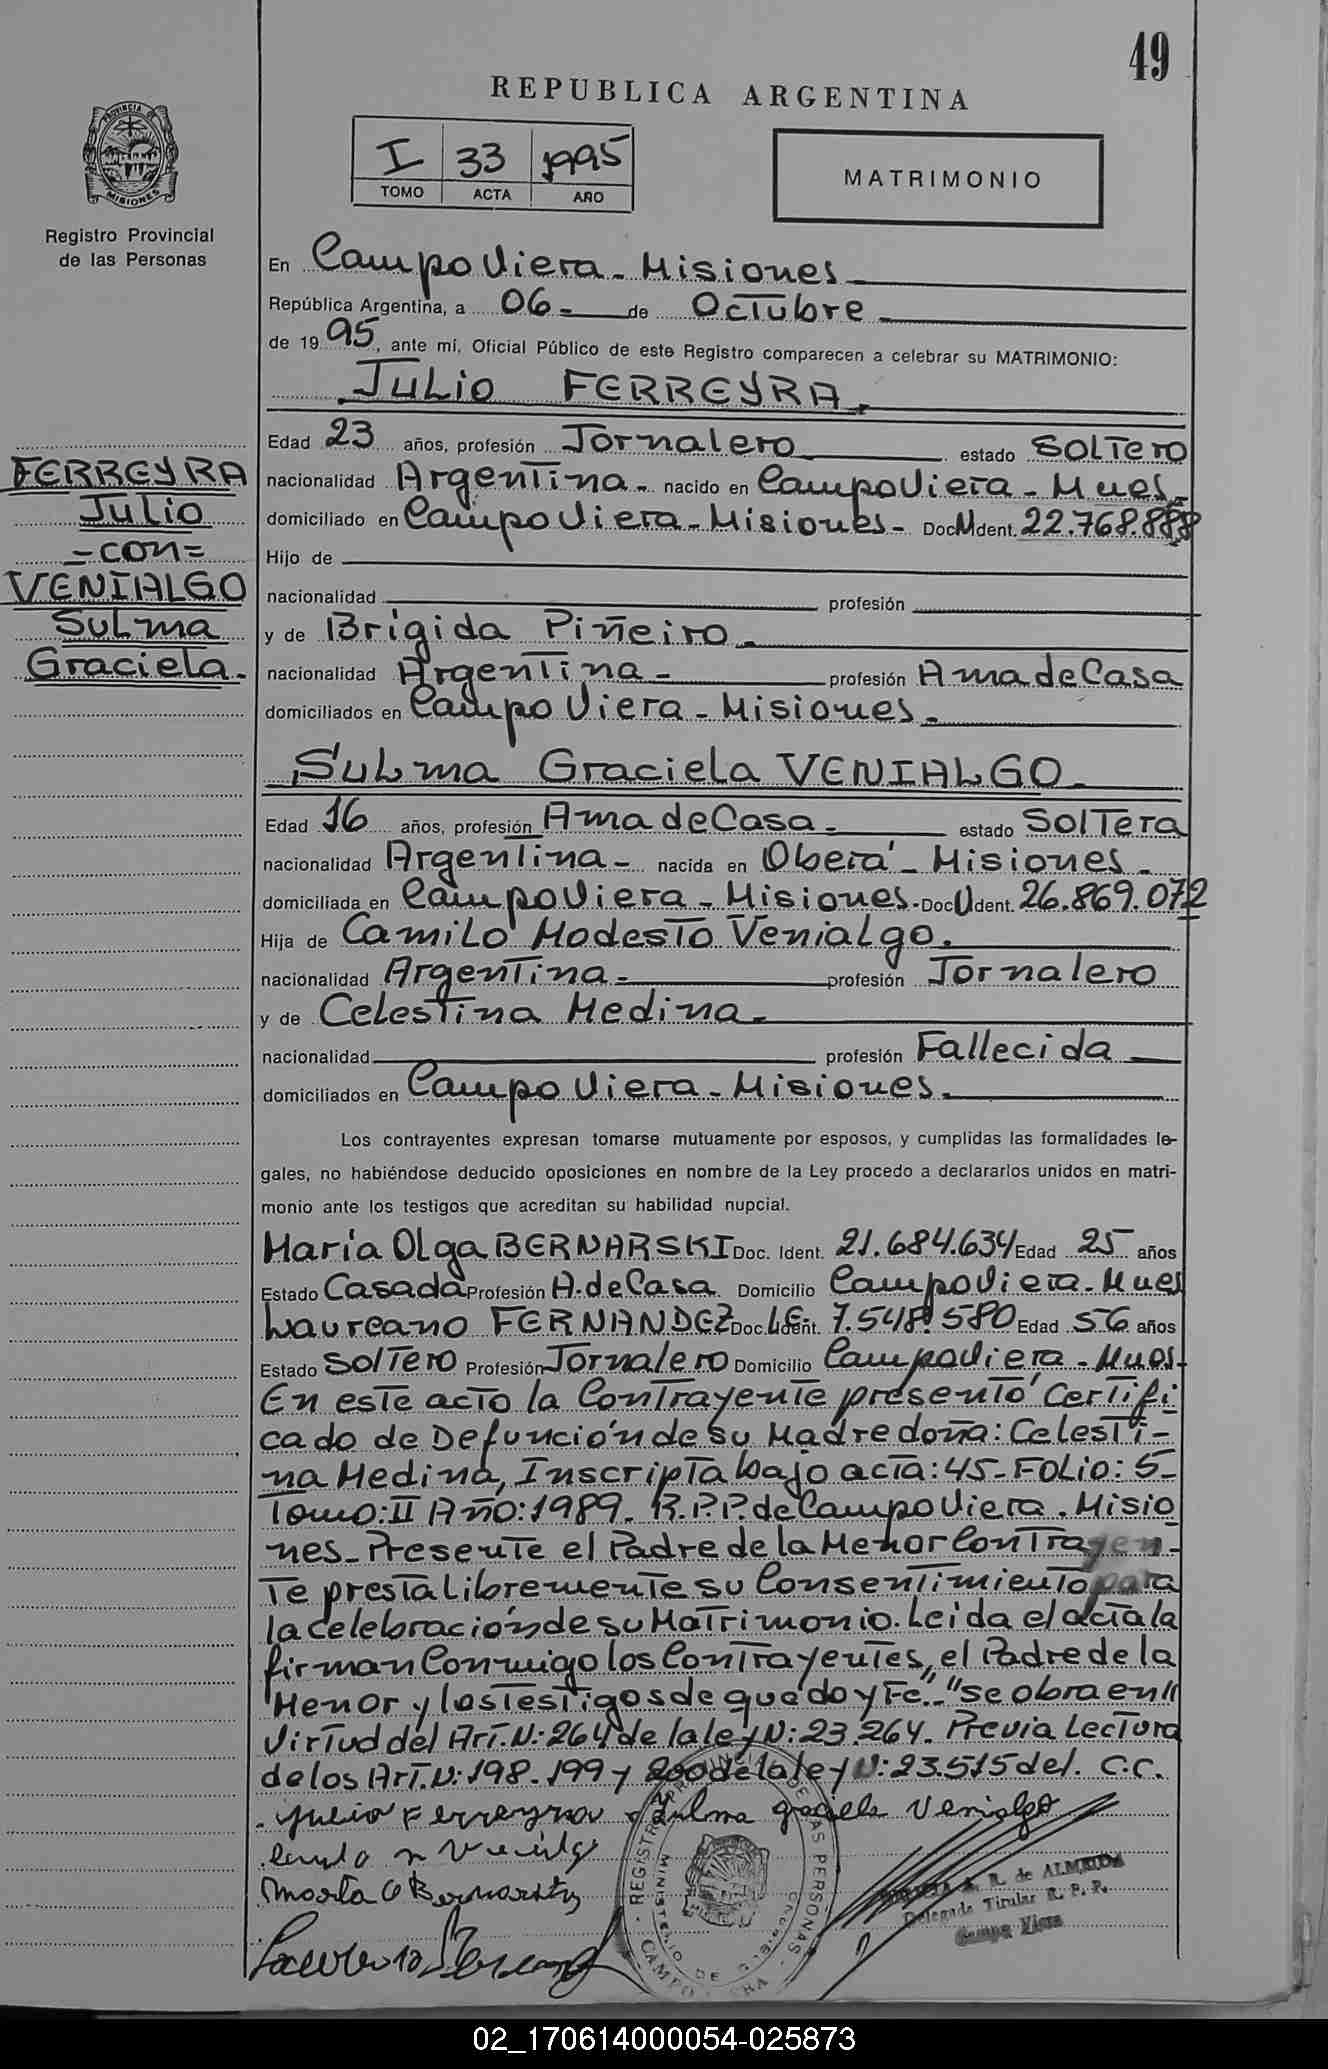 49
REPUBLICA ARGENTINA
I 33 1995
TOMO ACTA AÑO
MATRIMONIO
PROVINCIA DE
MISIONES
Registro Provincial
de las Personas
FERREYRA
Julio
=con=
VENIALGO
Sulma
Graciela.
En Campo Viera - Misiones
República Argentina, a 06 - de Octubre
de 19 95, ante mí, Oficial Público de este Registro comparecen a celebrar su MATRIMONIO:
JULIO FERREYRA.
Edad 23 años, profesión Jornalero estado Soltero
nacionalidad Argentina - nacido en Campo Viera - Mnes -
domiciliado en Campo Viera - Misiones - Doc M dent. 22.768.888
Hijo de
nacionalidad profesión
y de Brígida Piñeiro -
nacionalidad Argentina - profesión Ama de Casa
domiciliados en Campo Viera - Misiones -
Sulma Graciela VENIALGO -
Edad 16 años, profesión Ama de Casa - estado Soltera
nacionalidad Argentina - nacida en Oberá - Misiones -
domiciliada en Campo Viera - Misiones - Doc U dent. 26.869.072
Hija de Camilo Modesto Venialgo.
nacionalidad Argentina - profesión Jornalero
y de Celestina Medina -
nacionalidad profesión Fallecida
domiciliados en Campo Viera - Misiones.
Los contrayentes expresan tomarse mutuamente por esposos, y cumplidas las formalidades le-
gales, no habiéndose deducido oposiciones en nombre de la Ley procedo a declararlos unidos en matri-
monio ante los testigos que acreditan su habilidad nupcial.
María Olga BERNARSKI Doc. Ident. 21.684.634 Edad 25 años
Estado Casada Profesión A. de Casa Domicilio Campo Viera - Mnes
Laureano FERNANDEZ Doc. Ident. L.E. 7.548.580 Edad 56 años
Estado Soltero Profesión Jornalero Domicilio Campo Viera - Mnes.
En este acto la Contrayente presentó Certifi
cado de Defunción de su Madre doña: Celesti-
na Medina, Inscripta bajo acta: 45 - FOLIO: 5 -
Tomo: II Año: 1989. R.P.P. de Campo Viera. Misio
nes - Presente el Padre de la Menor Contrayen-
te presta libremente su Consentimiento para
la celebración de su Matrimonio. Leida el acta la
firman Conmigo los Contrayentes, el Padre de la
Menor y los Testigos de que doy Fe." "se obra en"
Virtud del Art. N: 264 de la ley N: 23.264. Previa Lectura
de los Art. N: 198 - 199 y 200 de la ley N: 23.515 del. C.C.
Julio Ferreyra Sulma graciela Venialgo
REGISTRO PROVINCIAL DE LAS PERSONAS
MINISTERIO DE GOBIERNO
CAMPO VIERA
R. de ALMEIDA
Delegada Titular R. P. P.
Campo Viera
02_170614000054-025873